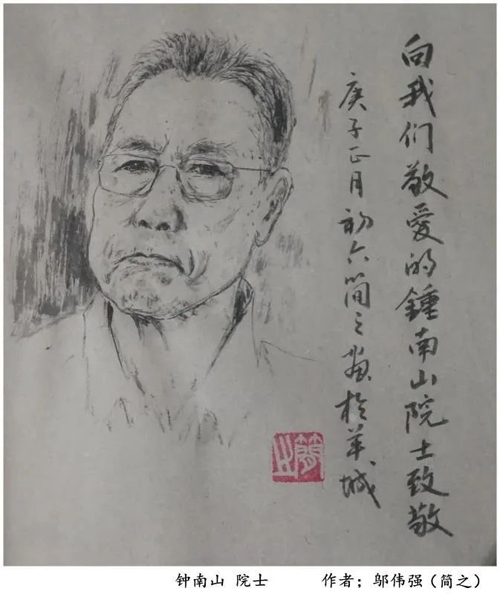 向我们敬爱的鍾南山院士致敬
庚子正月初六简之画於羊城
簡之
钟南山 院士 作者：邬伟强（简之）